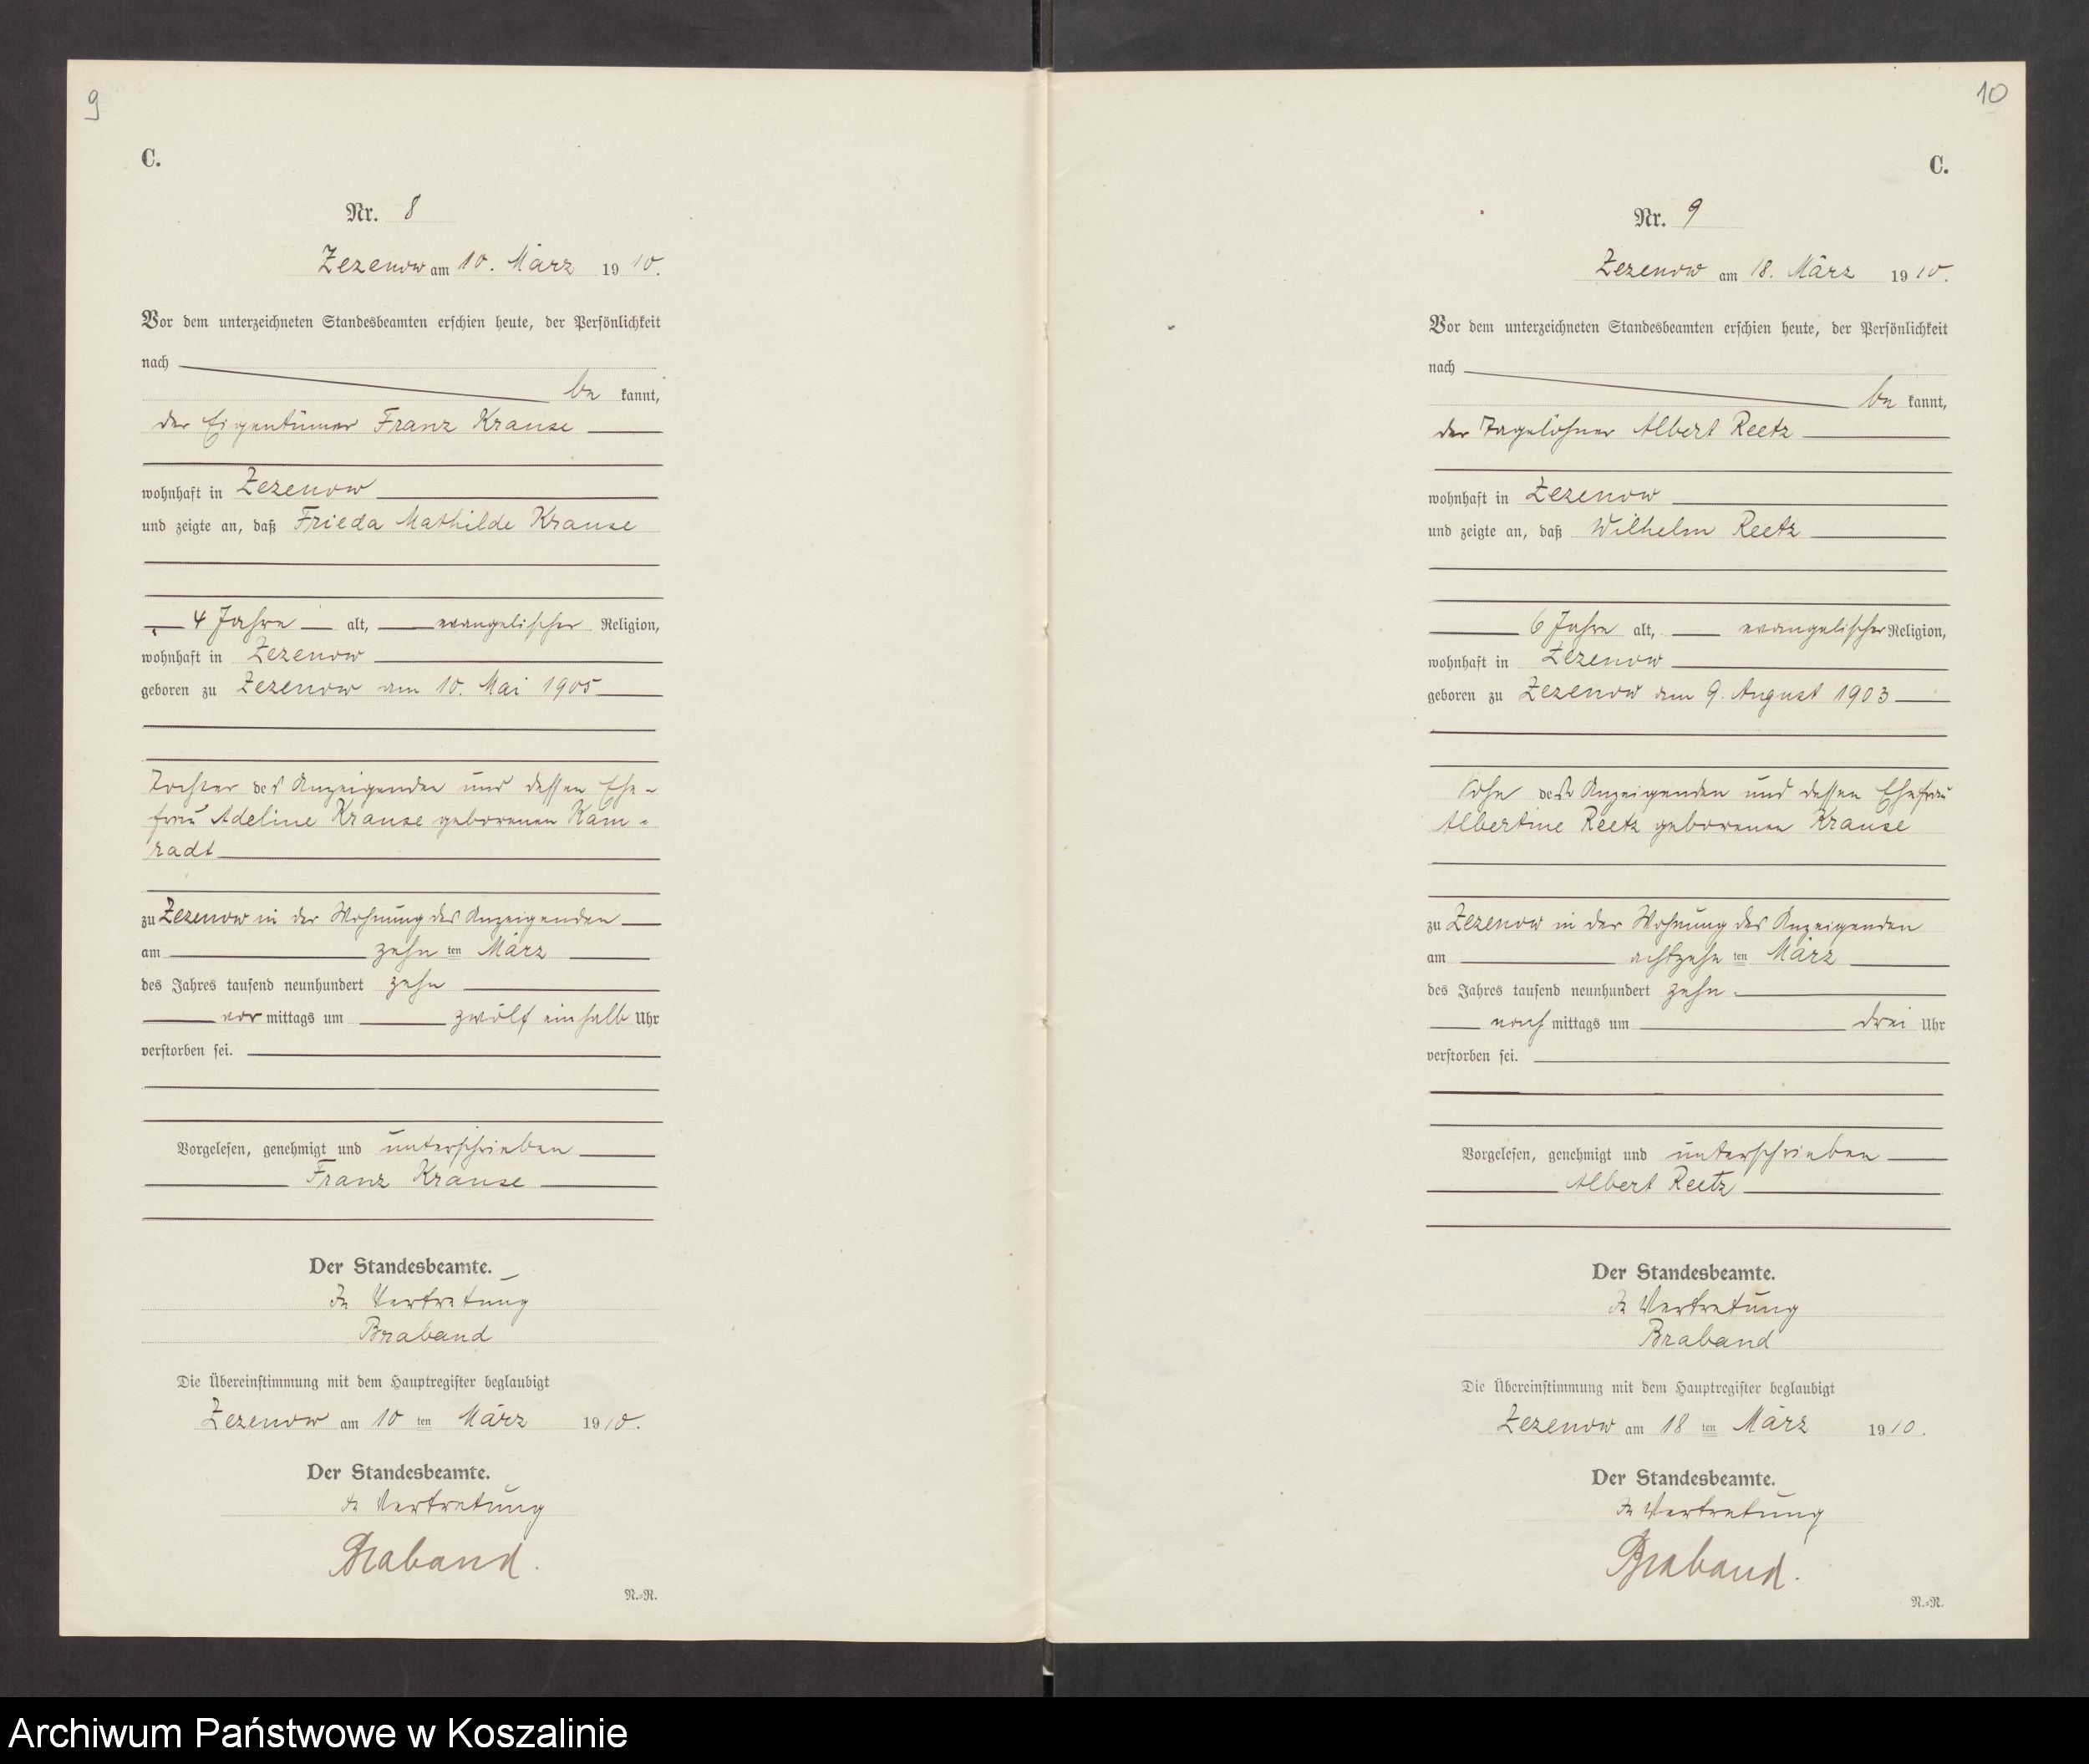 9
C.
Nr. 8
Zezenow am 10. März 1910.
Vor dem unterzeichneten Standesbeamten erschien heute, der Persönlichkeit
nach
be kannt,
der Eigentümer Franz Krause
wohnhaft in Zezenow
und zeigte an, daß Frieda Mathilde Krause
4 Jahre alt, evangelischer Religion,
wohnhaft in Zezenow
geboren zu Zezenow am 10. Mai 1905
Tochter des Anzeigenden und dessen Ehe-
frau Adeline Krause geborenen Kam-
radt
zu Zezenow in der Wohnung des Anzeigenden
am zehn ten März
des Jahres tausend neunhundert zehn
vor mittags um zwölf einhalb Uhr
verstorben sei.
Vorgelesen, genehmigt und unterschrieben
Franz Krause
Der Standesbeamte.
In Vertretung
Braband
Die Übereinstimmung mit dem Hauptregister beglaubigt
Zezenow am 10 ten März 1910.
Der Standesbeamte.
In Vertretung
Braband.
N.-R.
10
C.
Nr. 9
Zezenow am 18. März 1910.
Vor dem unterzeichneten Standesbeamten erschien heute, der Persönlichkeit
nach
be kannt,
der Tagelöhner Albert Reetz
wohnhaft in Zezenow
und zeigte an, daß Wilhelm Reetz
6 Jahre alt, evangelischer Religion,
wohnhaft in Zezenow
geboren zu Zezenow am 9. August 1903
Sohn des Anzeigenden und dessen Ehefrau
Albertine Reetz geborenen Krause
zu Zezenow in der Wohnung des Anzeigenden
am achtzehn ten März
des Jahres tausend neunhundert zehn.
nach mittags um drei Uhr
verstorben sei.
Vorgelesen, genehmigt und unterschrieben
Albert Reetz
Der Standesbeamte.
In Vertretung
Braband
Die Übereinstimmung mit dem Hauptregister beglaubigt
Zezenow am 18 ten März 1910.
Der Standesbeamte.
In Vertretung
Braband.
N.-R.
Archiwum Państwowe w Koszalinie